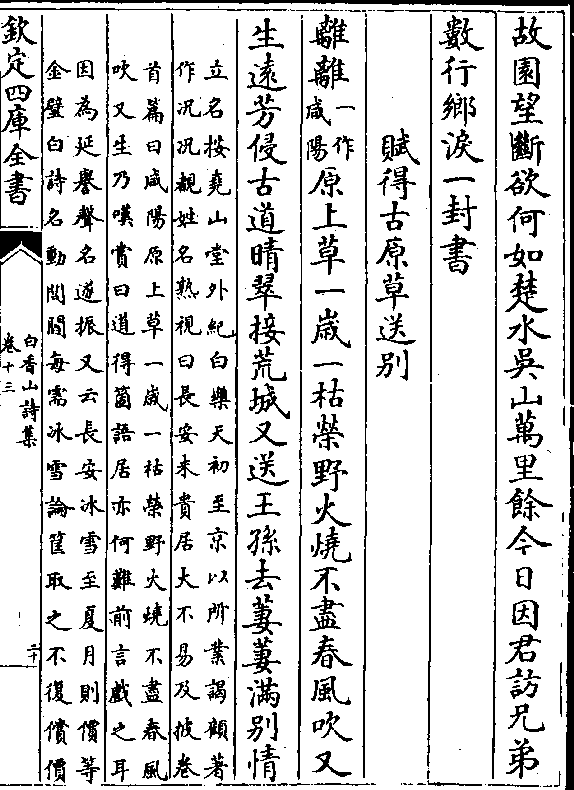 故園望斷欲何如楚水吳山萬里餘今日因君訪兄弟
數行鄉淚一封書
賦得古原草送别
離離一作咸陽原上草一歲一枯榮野火燒不盡春風吹又
生遠芳侵古道晴翠接荒城又送王孫去萋萋滿别情
立名按堯山堂外紀白樂天初至京以所業謁顧著
作况况覩姓名熟視曰長安米貴居大不易及披卷
首篇曰咸陽原上草一歲一枯榮野火燒不盡春風
吹又生乃嘆賞曰道得箇語居亦何難前言戲之耳
因為延譽聲名遂振又云長安冰雪至夏月則價等
金璧白詩名動閭閻每需冰雪論筐取之不復償價
欽定四庫全書
白香山詩集
卷十三
二十